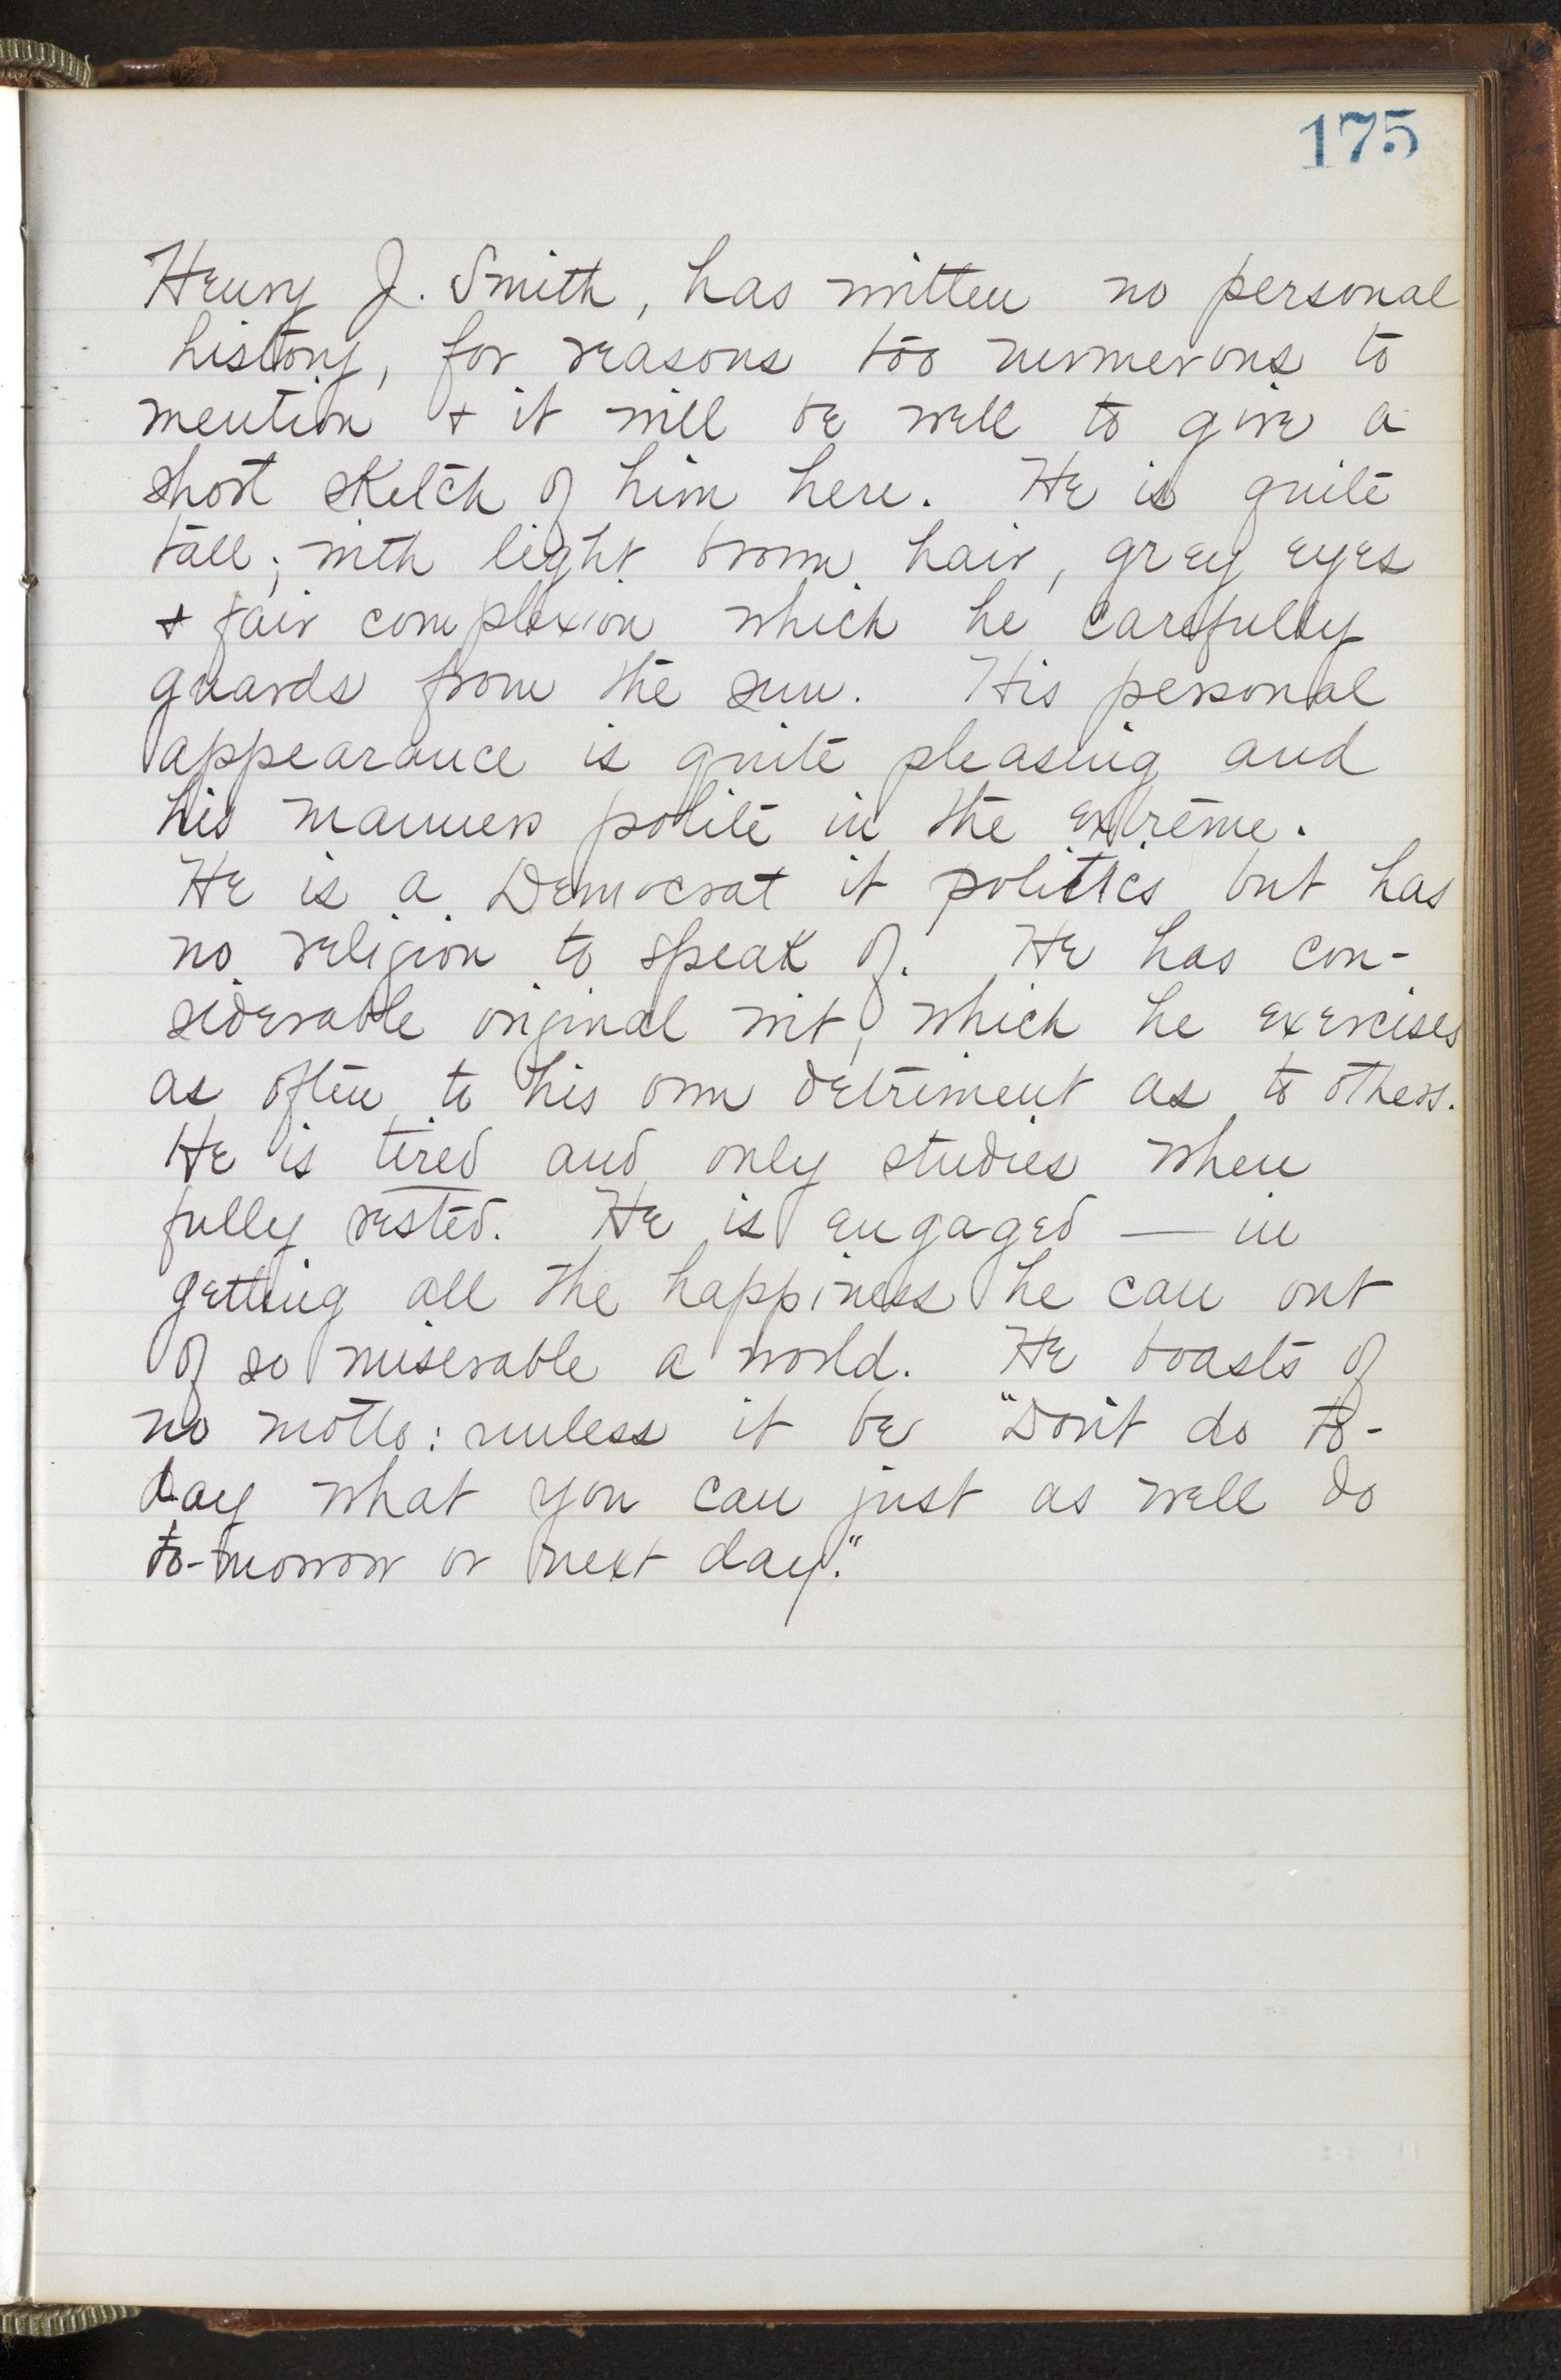 175
Henry J. Smith, has written no personal
history, for reasons too numerous to
mention & it will be well to give a
short sketch of him here. He is quite
tall; with light brown hair, grey eyes
& fair complexion which he carefully
guards from the sun. His personal
appearance is quite pleasing and
his manners polite in the extreme.
He is a Democrat it politics but has
no religion to speak of. He has con-
siderable original wit, which he exercises
as often to his own detriment as to others.
He is tired and only studies when
fully rested. He is engaged — in
getting all the happiness he can out
of so miserable a world. He boasts of
no motto: unless it be "Don't do to-
day what you can just as well do
to-morrow or next day."